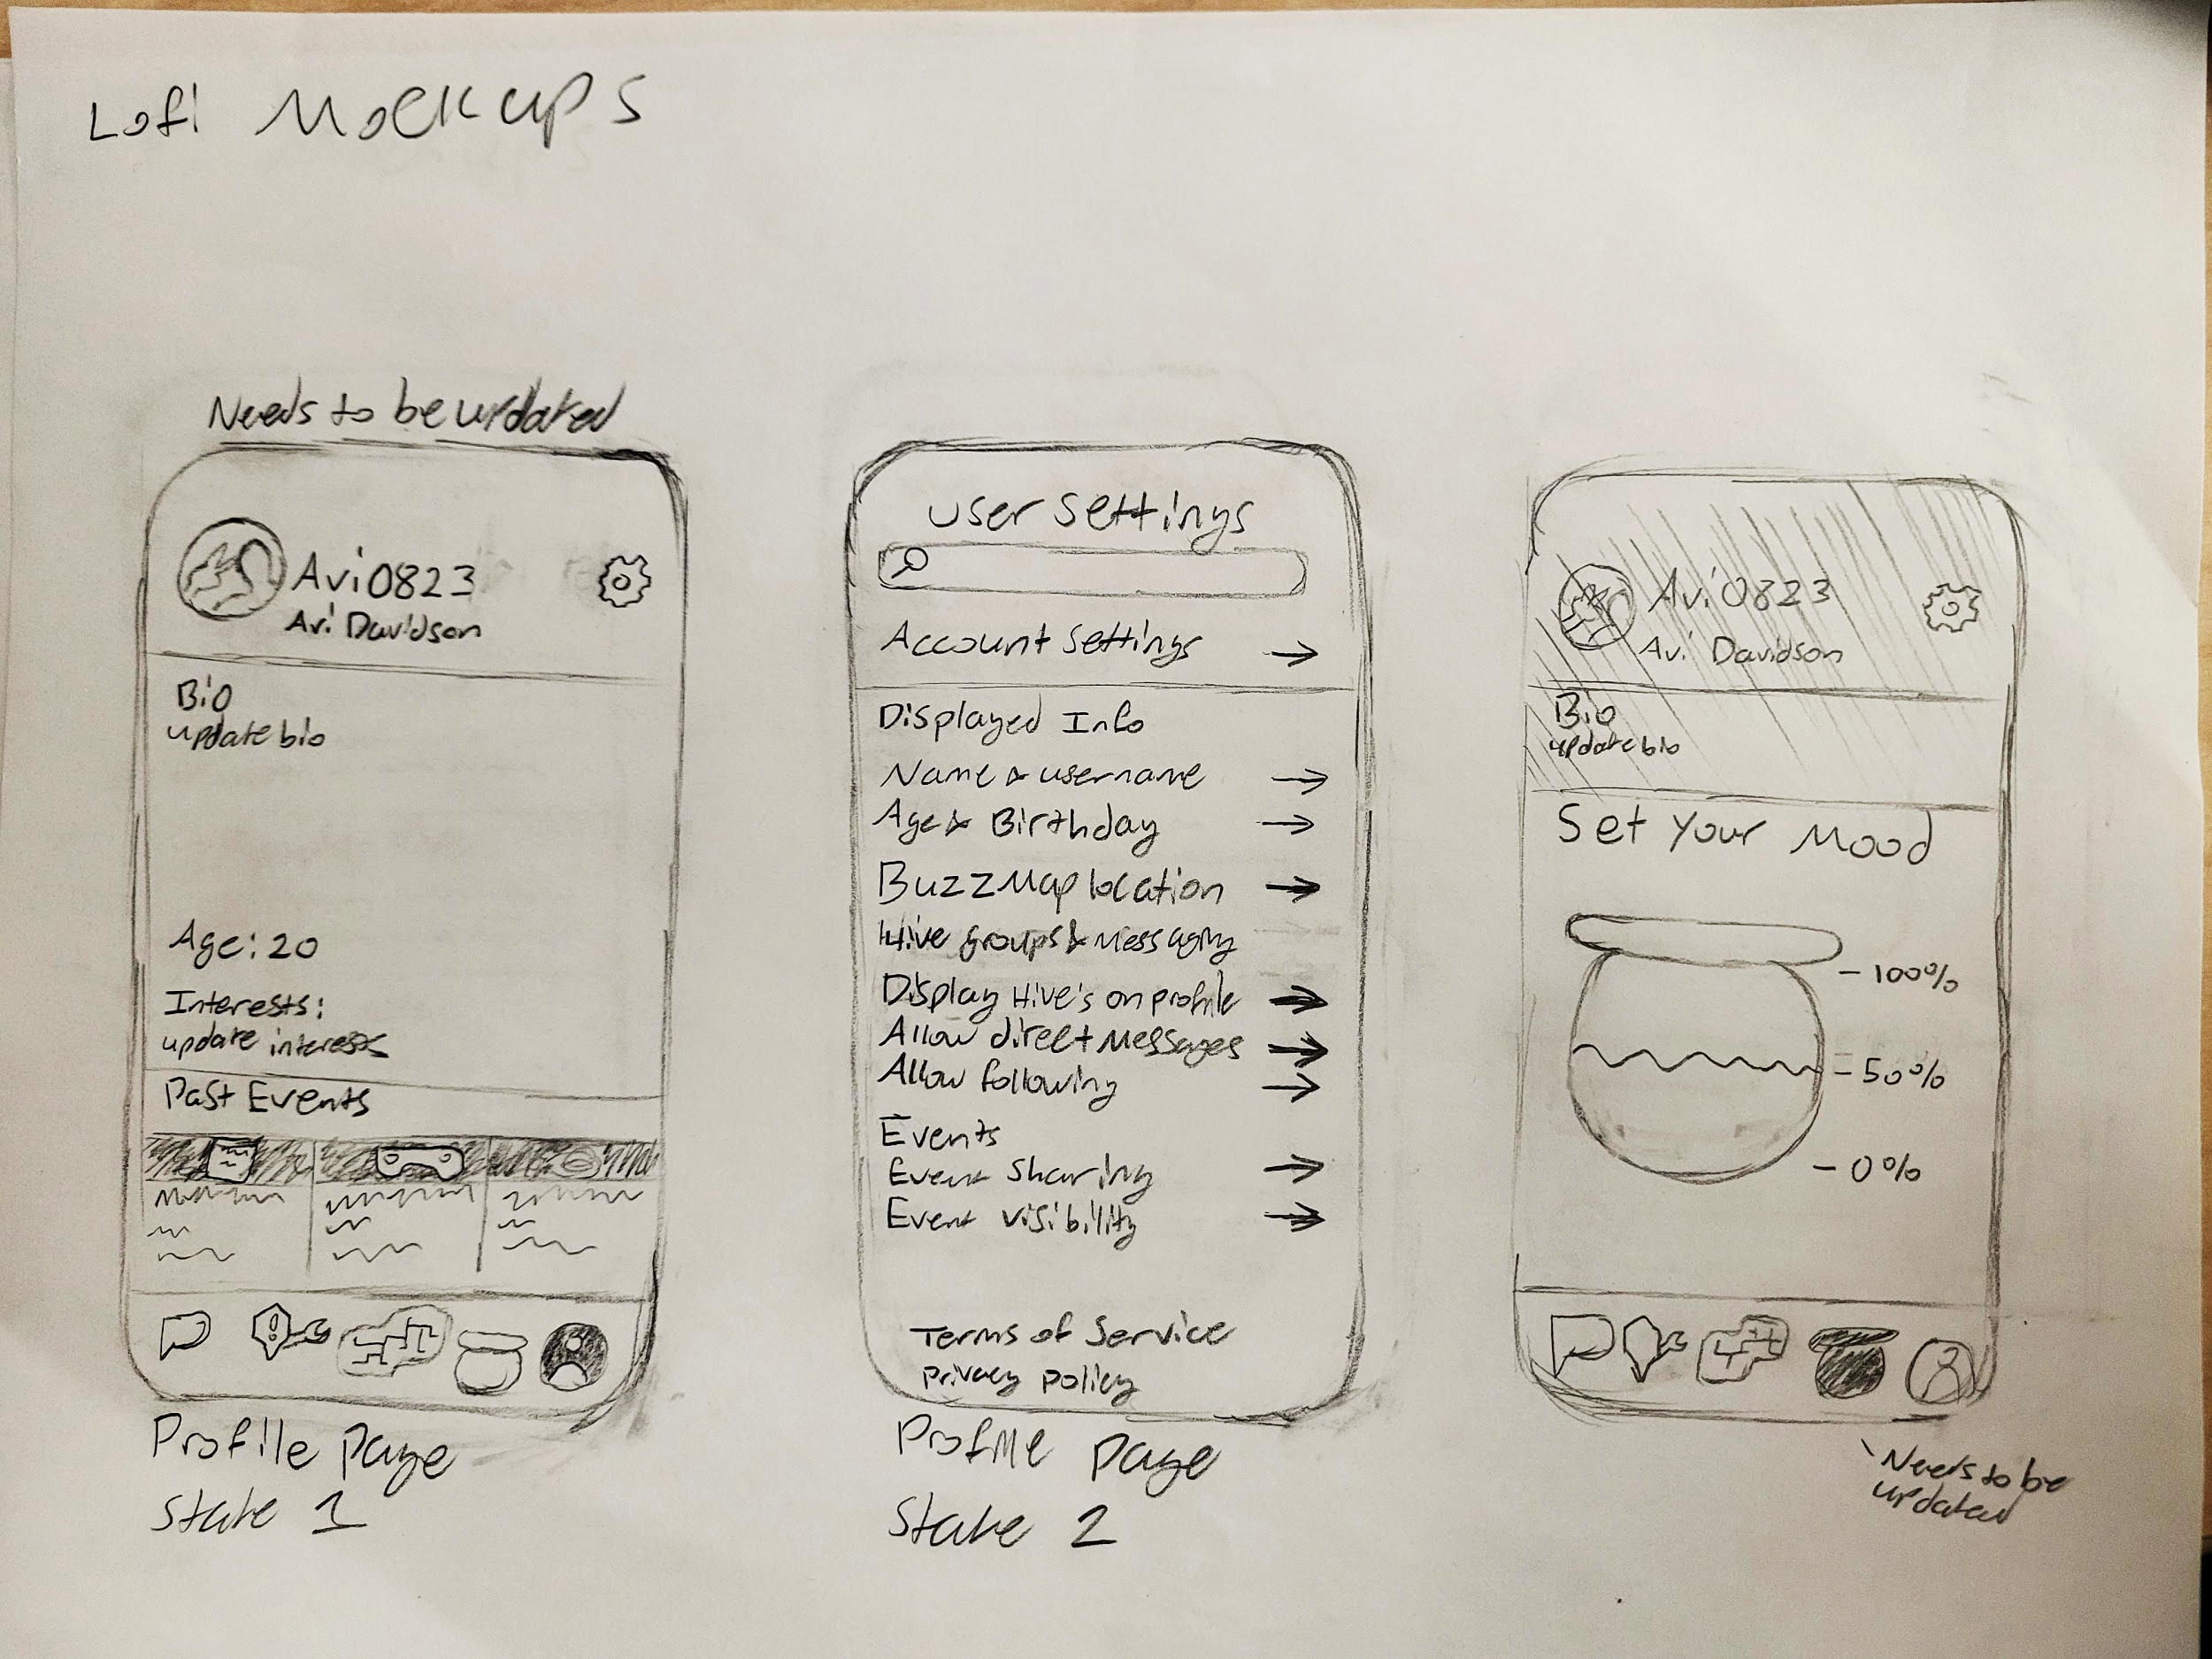 Lofi Mockups
Needs to be updated
Avi0823
Avi Davidson
Bio
update bio
Age: 20
Interests:
update interests
Past Events
Profile page
State 1
User Settings
Account Settings
Displayed Info
Name & username
Age & Birthday
BuzzMap location
Hive groups & Messaging
Display Hive's on profile
Allow direct Messages
Allow following
Events
Event Sharing
Event visibility
Terms of Service
Privacy policy
Profile page
State 2
Avi0823
Avi Davidson
Bio
update bio
Set Your Mood
- 100%
- 50%
- 0%
Needs to be
updated